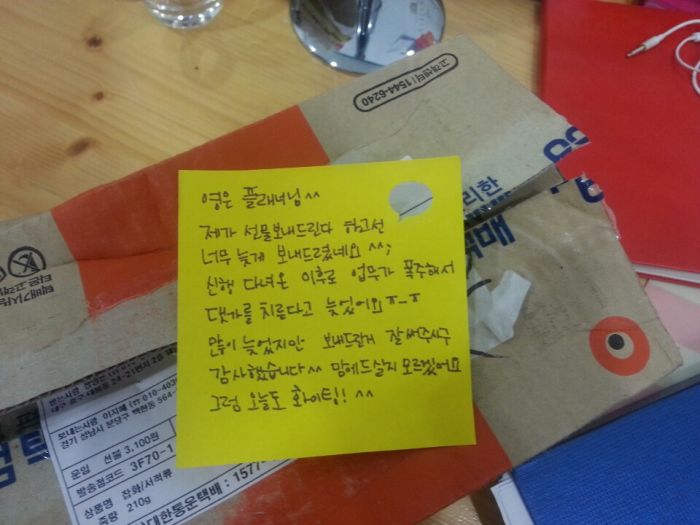 고객센터 : 1544-6240
영은 플래너님^^
제가 선물보내드린다 하고선
너무 늦게 보내드렸네요 ^^;
신행 다녀온 이후로 업무가 폭주해서
댓가를 치른다고 늦었어요ㅠ_ㅠ
많이 늦었지만 보내드린거 잘써주시구
감사했습니다^^ 맘에드실지 모르겠어요
그럼 오늘도 화이팅! ^^
리한
택배
보내는사람 이지혜 (☎ 010-403
경기 성남시 분당구 백현동 564-
운임 선불 3,100원
발송점코드 3F70-1
상품명 잡화/서적류
중량 210g
대한통운택배 : 1577-